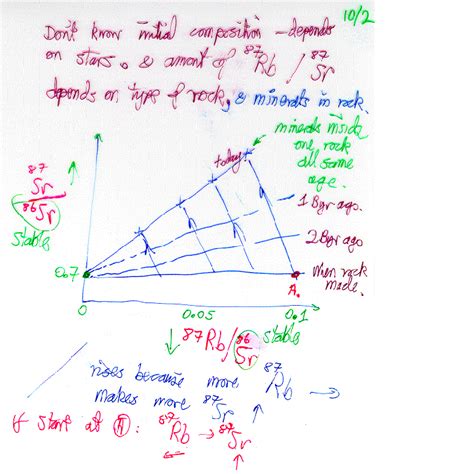 10/2
Don't know initial composition – depends
on stars. & amount of ⁸⁷Rb / ⁸⁷Sr
depends on type of rock, & minerals in rock.
minerals inside
one rock
all same
age.
today
⁸⁷Sr
⁸⁶Sr
stable
1 Byr ago.
2 Byr ago
When rock
made.
0.7
A.
0
0.05
0.1
⁸⁷Rb/⁸⁶Sr stable
rises because more ⁸⁷Rb →
makes more ⁸⁷Sr ↑
If start at A: ⁸⁷Rb → ⁸⁷Sr
← ↑